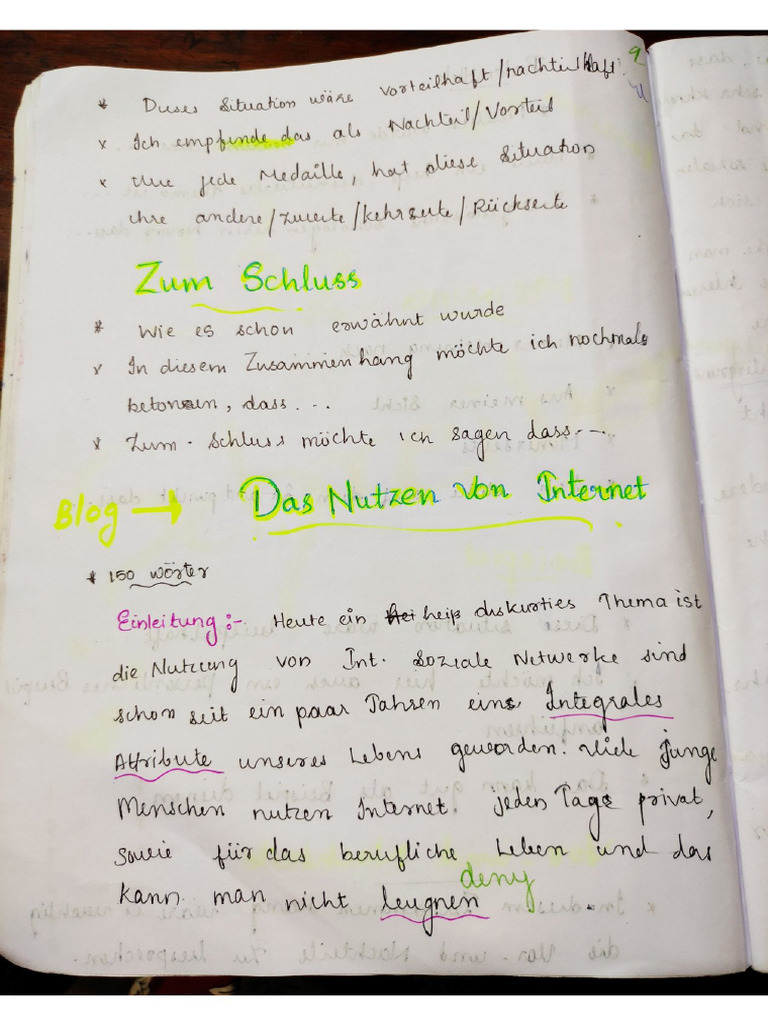 * Dieses Situation wäre vorteilhaft/nachteilhaft
x Ich empfinde das als Nachteil/Vorteil
x Wie jede Medaille, hat diese Situation
ihre andere/zweite/kehrseite/Rückseite
Zum Schluss
* Wie es schon erwähnt wurde
x In diesem Zusammenhang möchte ich nochmals
betonen, dass...
x Zum Schluss möchte ich sagen dass...
Blog → Das Nutzen von Internet
* 150 wörter
Einleitung:- Heute ein heiß diskuties Thema ist
die Nutzung von Int. Soziale Netwerke sind
schon seit ein paar Jahren eins Integrales
Attribute unseres Lebens geworden. Viele junge
Menschen nutzen Internet jeden Tage privat,
sowie für das berufliche Leben und das
deny
kann man nicht leugnen.